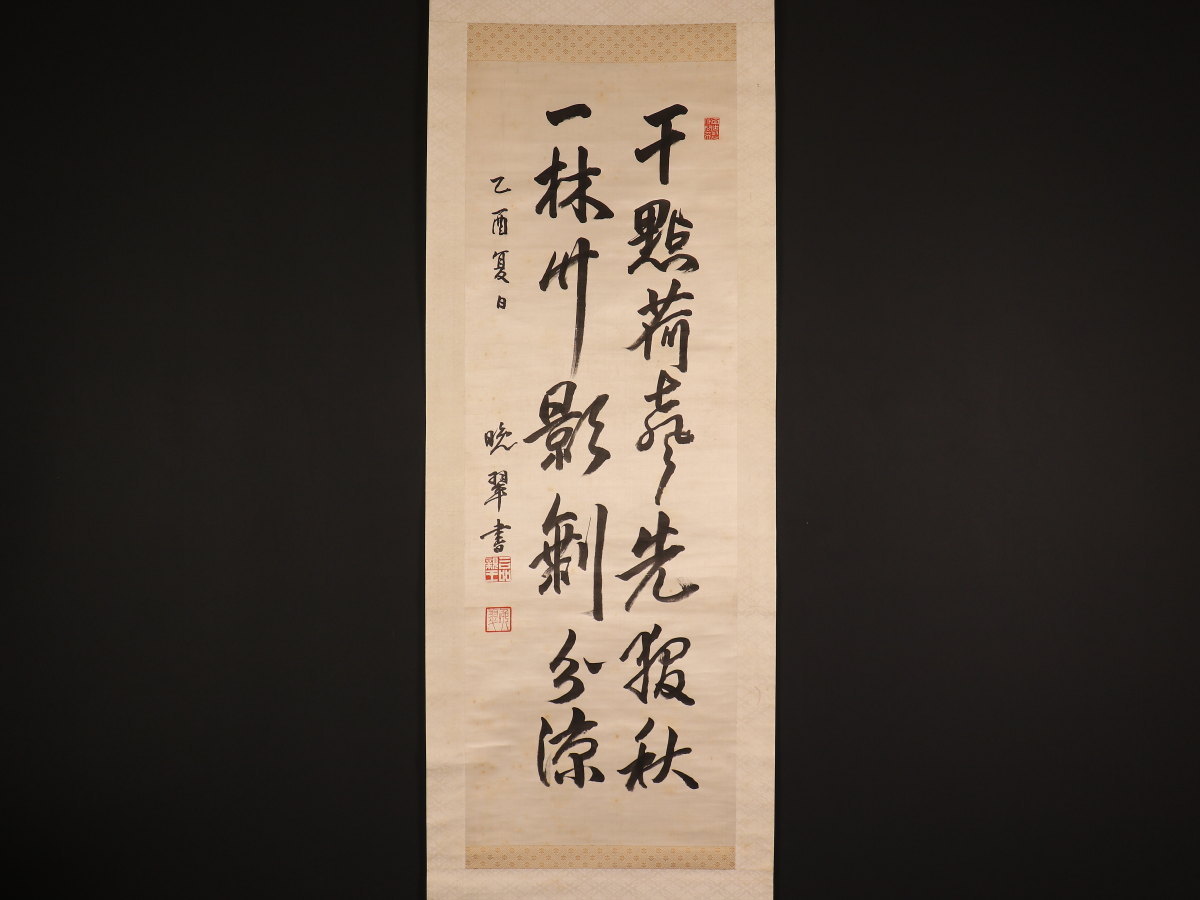 千點荷聲先報秋
一林竹影剩分涼
乙酉夏日
晩翠書